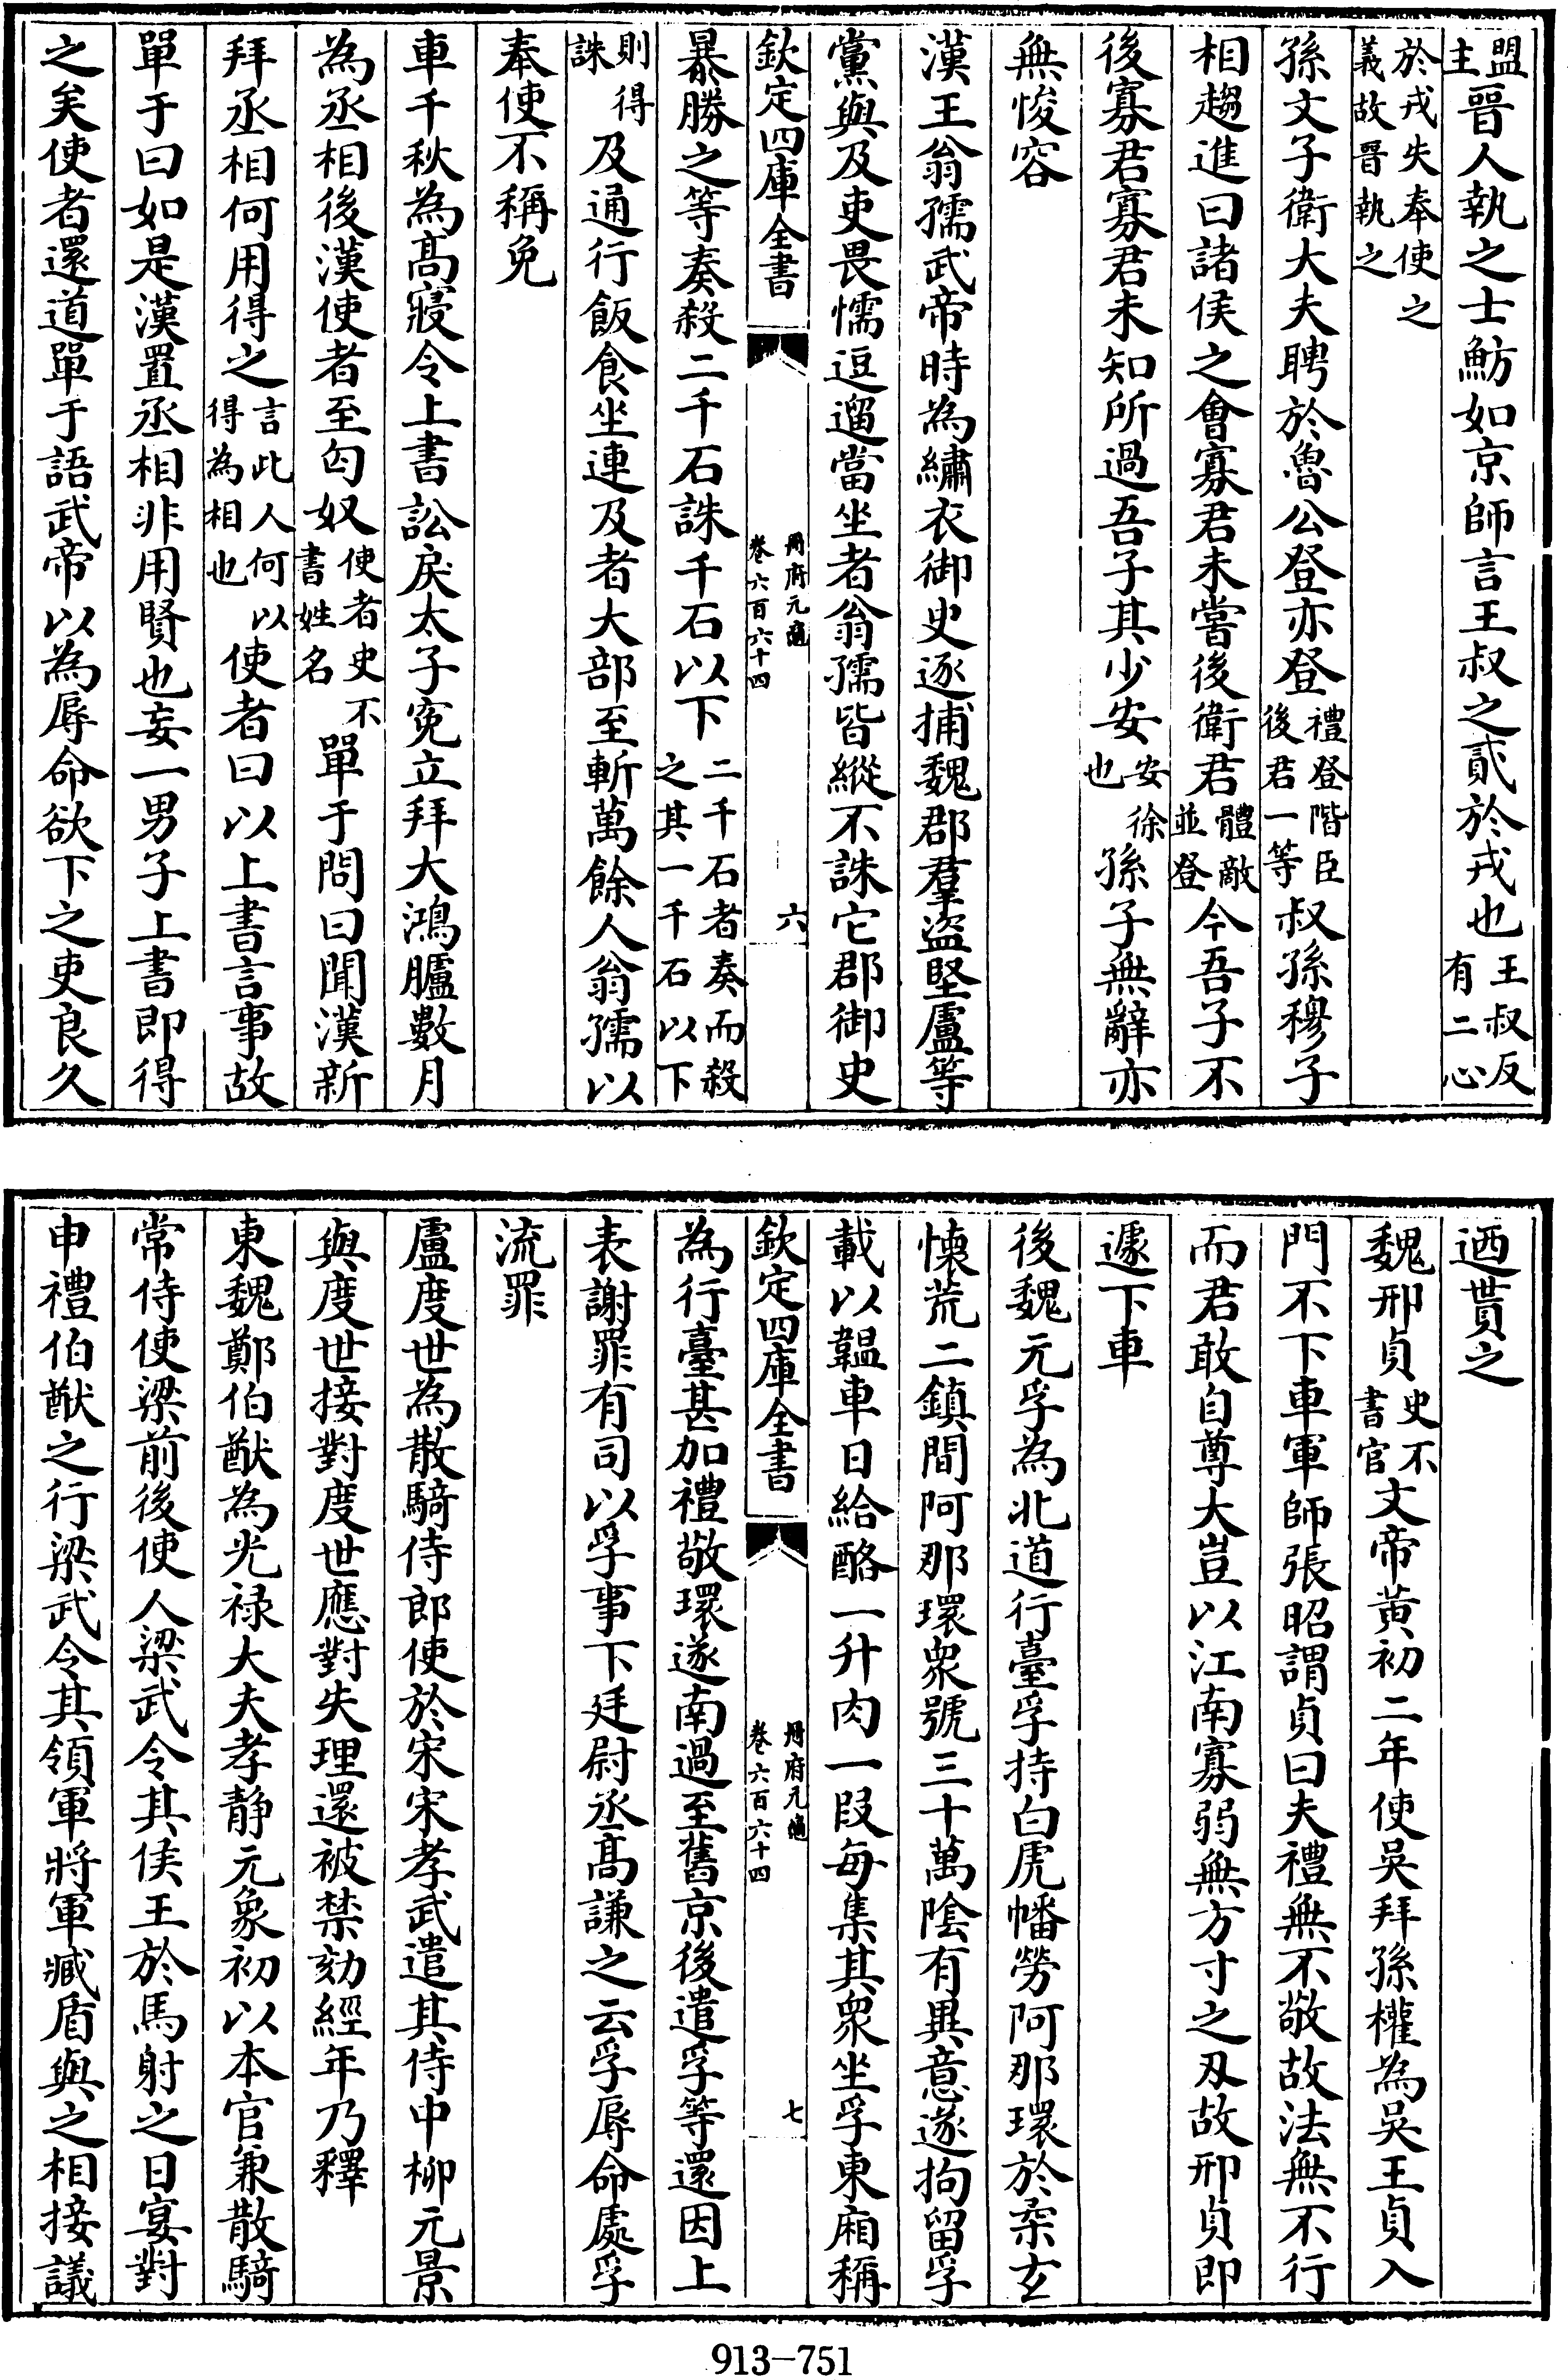 盟主晉人執之士魴如京師言王叔之貳於戎也王叔反有二心
於戎失奉使之義故晉執之
孫文子衛大夫聘於魯公登亦登禮登階臣後君一等叔孫穆子
相趨進曰諸侯之會寡君未嘗後衛君體敵並登今吾子不
後寡君寡君未知所過吾子其少安安徐也孫子無辭亦
無悛容
漢王翁孺武帝時為繡衣御史逐捕魏郡羣盜堅盧等
黨與及吏畏懦逗遛當坐者翁孺皆縱不誅它郡御史
欽定四庫全書 冊府元龜 卷六百六十四 六
暴勝之等奏殺二千石誅千石以下二千石者奏而殺之其一千石以下
則得誅及通行飯食坐連及者大部至斬萬餘人翁孺以
奉使不稱免
車千秋為高寢令上書訟戾太子寃立拜大鴻臚數月
為丞相後漢使者至匈奴使者史不書姓名單于問曰聞漢新
拜丞相何用得之言此人何以得為相也使者曰以上書言事故
單于曰如是漢置丞相非用賢也妄一男子上書即得
之矣使者還道單于語武帝以為辱命欲下之吏良久
迺貰之
魏邢貞史不書官文帝黃初二年使吳拜孫權為吳王貞入
門不下車軍師張昭謂貞曰夫禮無不敬故法無不行
而君敢自尊大豈以江南寡弱無方寸之刄故邢貞即
遽下車
後魏元孚為北道行臺孚持白虎幡勞阿那瓌於柔玄
懐荒二鎮間阿那瓌衆號三十萬陰有異意遂拘留孚
載以轀車日給酪一升肉一段每集其衆坐孚東廂稱
欽定四庫全書 冊府元龜 卷六百六十四 七
為行臺甚加禮敬瓌遂南過至舊京後遣孚等還因上
表謝罪有司以孚事下廷尉丞高謙之云孚辱命處孚
流罪
盧度世為散騎侍郎使於宋宋孝武遣其侍中柳元景
與度世接對度世應對失理還被禁劾經年乃釋
東魏鄭伯猷為光祿大夫孝静元象初以本官兼散騎
常侍使梁前後使人梁武令其侯王於馬射之日宴對
申禮伯猷之行梁武令其領軍將軍臧盾與之相接議
913-751